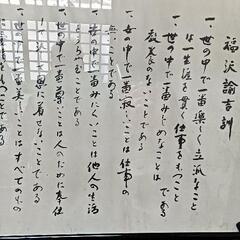 福沢諭吉訓
一、世の中で一番楽しく立派なこと
は一生涯を貫く仕事をもつこと
一、世の中で一番みじめなことは
教養のないことである
一、世の中で一番寂しいことは仕事の
無いことである
一、世の中で一番みにくいことは他人の生活
をうらやむことである
一、世の中で一番尊いことは人のために奉仕
して決して恩に着せないことである
一、世の中で一番美しいことはすべてのもの